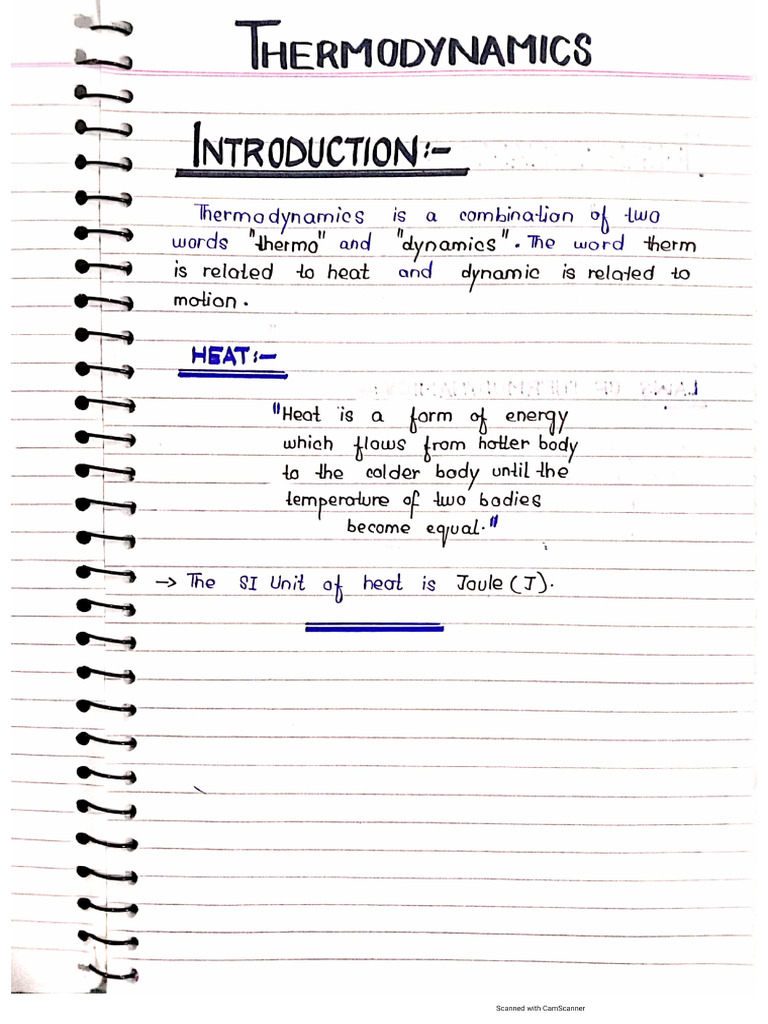 THERMODYNAMICS
INTRODUCTION:-
Thermodynamics is a combination of two
words "thermo" and "dynamics". The word therm
is related to heat and dynamic is related to
motion.
HEAT:-
"Heat is a form of energy
which flows from hotter body
to the colder body until the
temperature of two bodies
become equal."
→ The SI Unit of heat is Joule (J).
Scanned with CamScanner